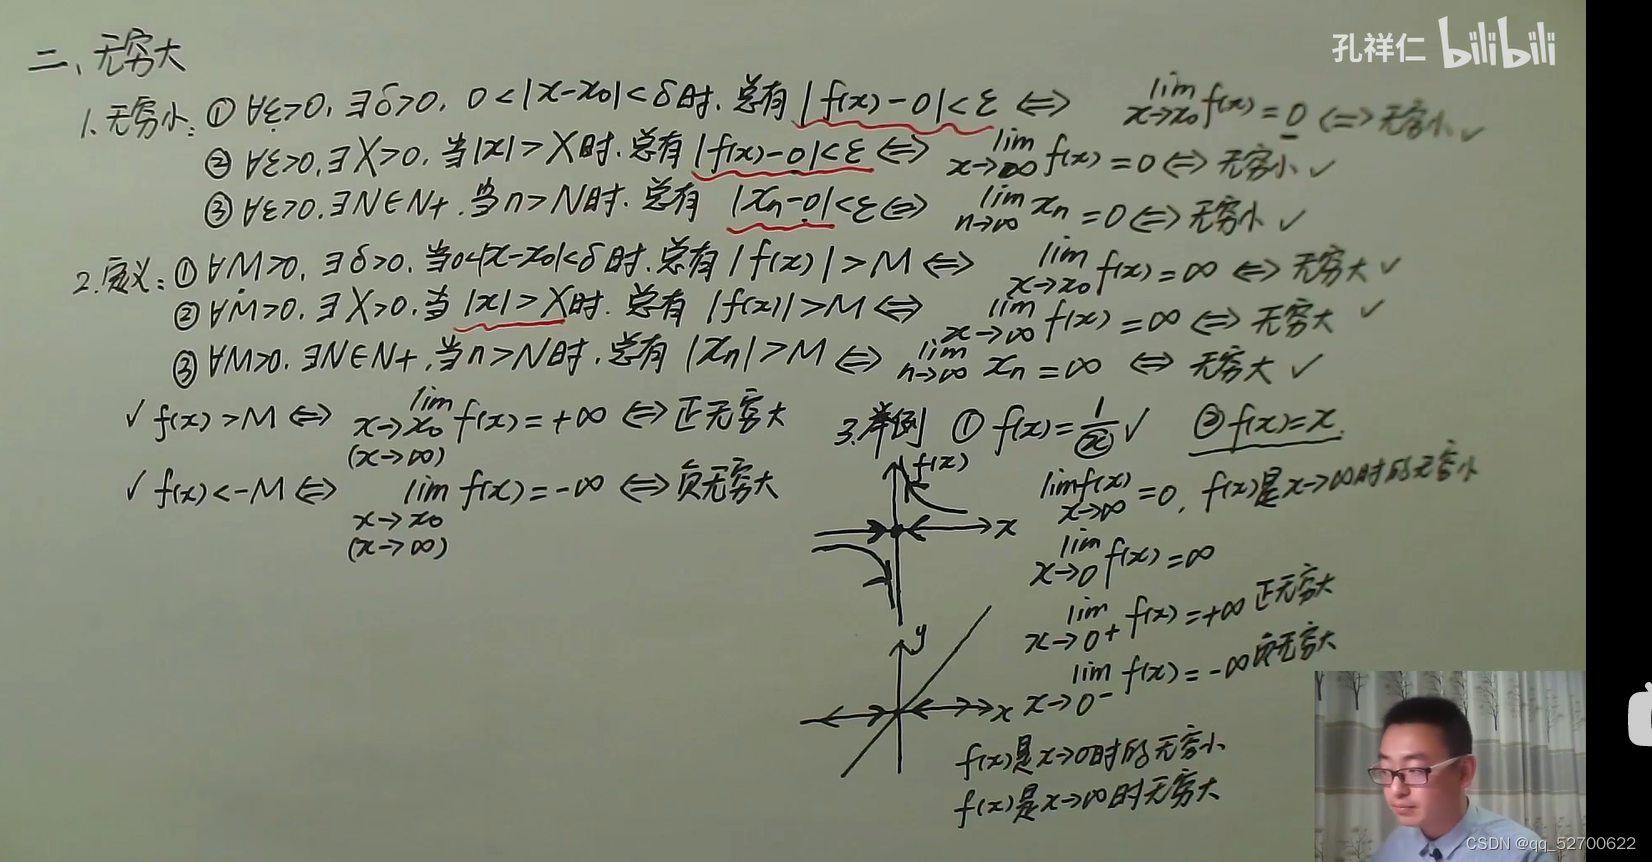 孔祥仁 bilibili
二、无穷大
1.无穷小: ① ∀ε>0, ∃δ>0, 0<|x-x₀|<δ时. 总有 |f(x)-0|<ε ⇔ lim x→x₀ f(x)=0 ⇔ 无穷小 ✓
② ∀ε>0, ∃X>0, 当|x|>X时. 总有 |f(x)-0|<ε ⇔ lim x→∞ f(x)=0 ⇔ 无穷小 ✓
③ ∀ε>0. ∃N∈N+. 当n>N时. 总有 |xₙ-0|<ε ⇔ lim n→∞ xₙ=0 ⇔ 无穷小 ✓
2.定义: ① ∀M>0, ∃δ>0. 当0<|x-x₀|<δ时. 总有 |f(x)|>M ⇔ lim x→x₀ f(x)=∞ ⇔ 无穷大 ✓
② ∀M>0, ∃X>0, 当|x|>X时. 总有 |f(x)|>M ⇔ lim x→∞ f(x)=∞ ⇔ 无穷大 ✓
③ ∀M>0. ∃N∈N+, 当n>N时, 总有 |xₙ|>M ⇔ lim n→∞ xₙ=∞ ⇔ 无穷大 ✓
✓ f(x)>M ⇔ lim x→x₀ (x→∞) f(x)=+∞ ⇔ 正无穷大
✓ f(x)<-M ⇔ lim x→x₀ (x→∞) f(x)=-∞ ⇔ 负无穷大
3.举例 ① f(x)=1/x ✓ ② f(x)=x.
f(x)
x
lim f(x) x→∞ =0, f(x)是x→∞时的无穷小
lim x→0 f(x)=∞
lim x→0⁺ f(x)=+∞ 正无穷大
lim x→0⁻ f(x)=-∞ 负无穷大
y
x
f(x)是x→0时的无穷小
f(x)是x→∞时无穷大
CSDN @qq_52700622